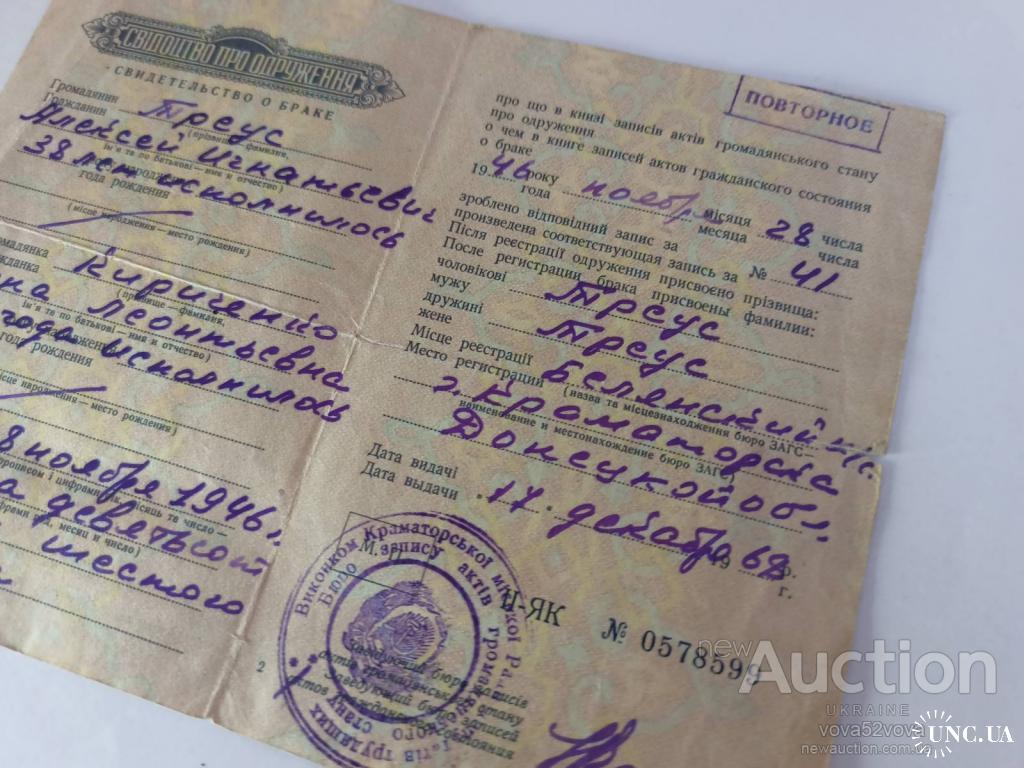 СВІДОЦТВО ПРО ОДРУЖЕННЯ
СВИДЕТЕЛЬСТВО О БРАКЕ
Громадянин
Гражданин Треус
(прізвище — фамилия,
Алексей Игнатьевич
ім'я та по батькові — имя и отчество)
38 лет исполнилось
народження
года рождения
(місце народження — место рождения)
Кириченко
(прізвище — фамилия,
Леонтьевна
ім'я та по батькові — имя и отчество)
года исполнилось
года рождения
место рождения)
8 ноября 1946 г.
прописом і цифрами рік, місяць та число —
девятьсот
месяц и число)
шестого
2
ПОВТОРНОЕ
про що в книзі записів актів громадянського стану
про одруження
о чем в книге записей актов гражданского состояния
о браке
1946 року ноября місяця 28 числа
года месяца числа
зроблено відповідний запис за
произведена соответствующая запись за № 41
Після реєстрації одруження присвоєно прізвища:
После регистрации брака присвоены фамилии:
чоловікові
мужу Треус
дружині
жене Треус
Місце реєстрації
Место регистрации Белянский
(назва та місцезнаходження бюро ЗАГС —
г. Краматорска
наименование и местонахождение бюро ЗАГС)
Донецкой обл.
Дата видачі
Дата выдачи 17 декабря 1969 р.
г.
М.
Виконком Краматорської міської Ради
Бюро запису актів
трудящих
стану
II-ЯК № 0578599
Завідуючий бюро записів
актів громадянського стану
Заведующий бюро записей
актов гражданского состояния
newAuction
UKRAINE
vova52vova
newauction.com.ua
UNC.UA